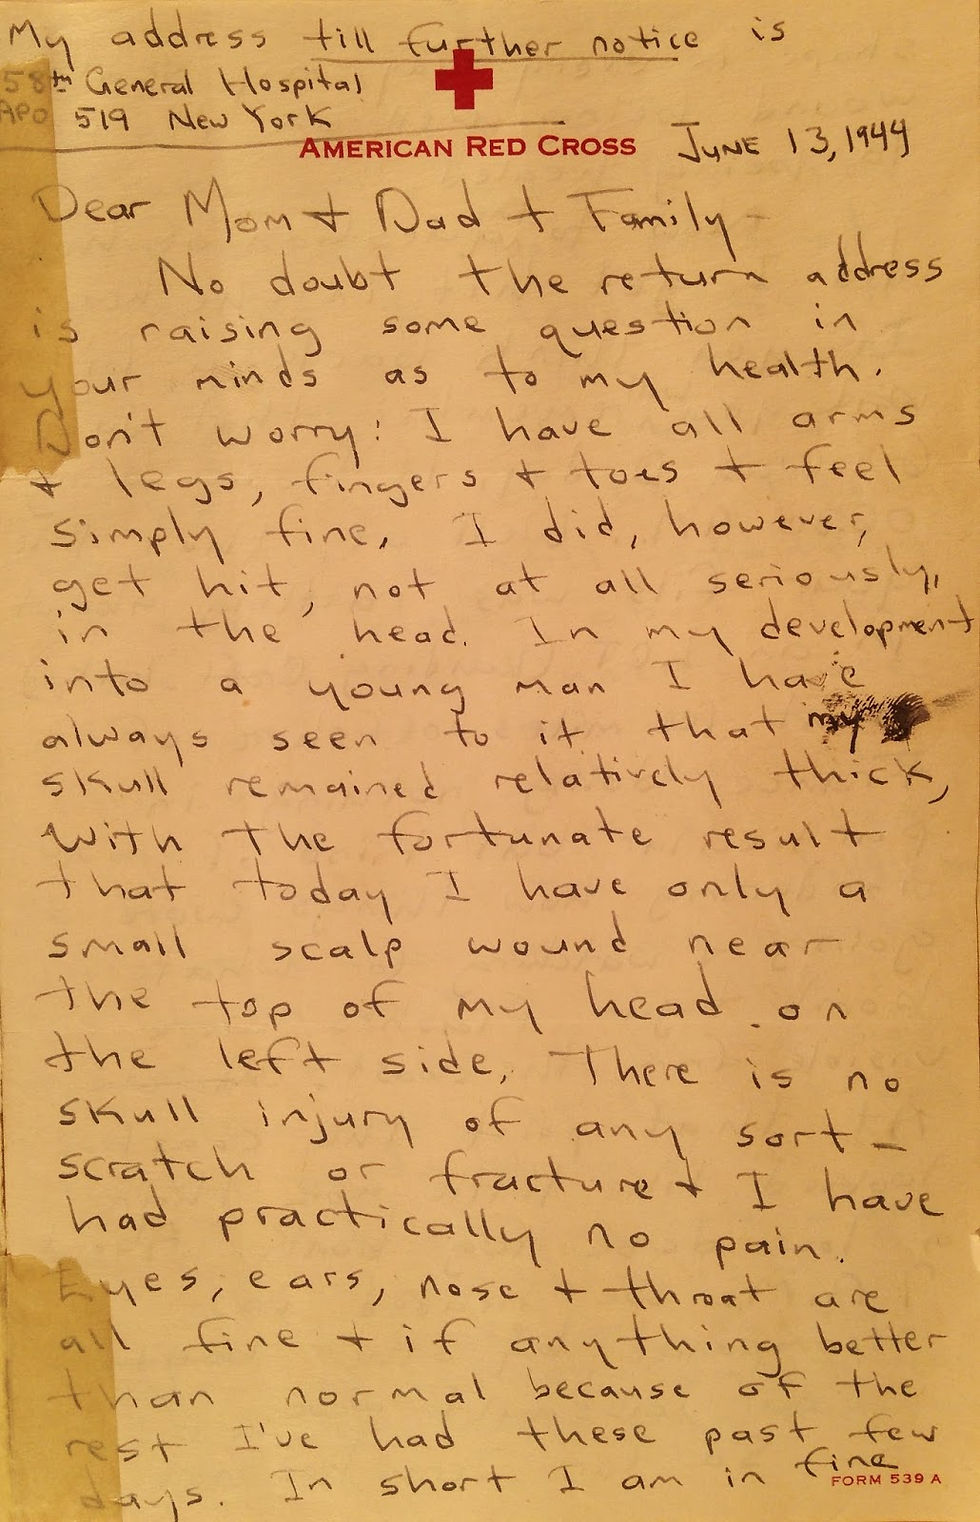 My address till further notice is
58th General Hospital
APO 519 New York
AMERICAN RED CROSS
JUNE 13, 1944
Dear Mom + Dad + Family -
No doubt the return address
is raising some question in
your minds as to my health.
Don't worry: I have all arms
+ legs, fingers + toes + feel
simply fine. I did, however,
get hit, not at all seriously,
in the head. In my development
into a young man I have
always seen to it that my
skull remained relatively thick,
with the fortunate result
that today I have only a
small scalp wound near
the top of my head on
the left side. There is no
skull injury of any sort -
scratch or fracture + I have
had practically no pain.
Eyes, ears, nose + throat are
all fine + if anything better
than normal because of the
rest I've had these past few
days. In short I am in fine
FORM 539 A